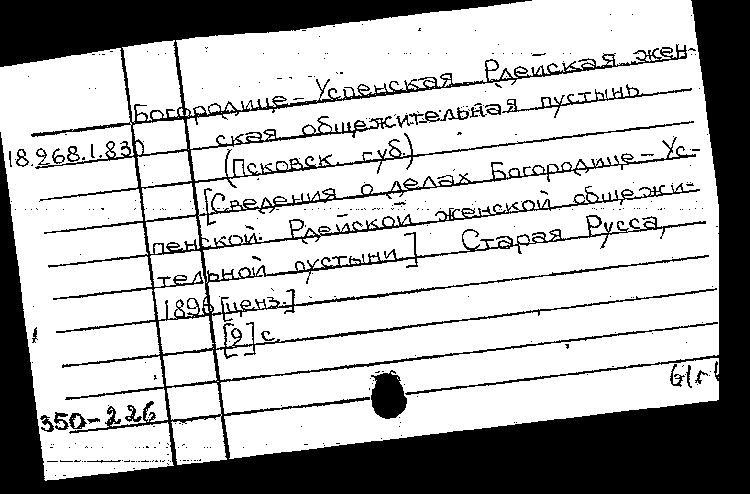 Богородице-Успенская Рдейская жен-
ская общежительная пустынь
18.268.1.830
(Псковск. губ.)
[Сведения о делах Богородице-Ус-
пенской Рдейской женской общежи-
тельной пустыни] Старая Русса,
1896 [ценз.]
[2] с.
350-226